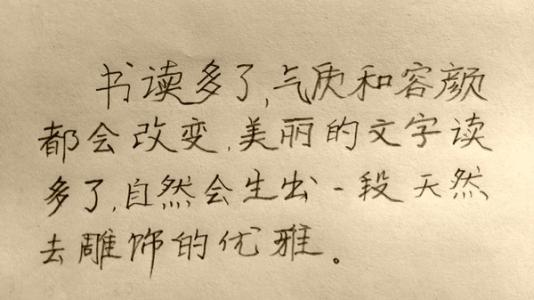 书读多了,气质和容颜
都会改变.美丽的文字读
多了,自然会生出一段天然
去雕饰的优雅。